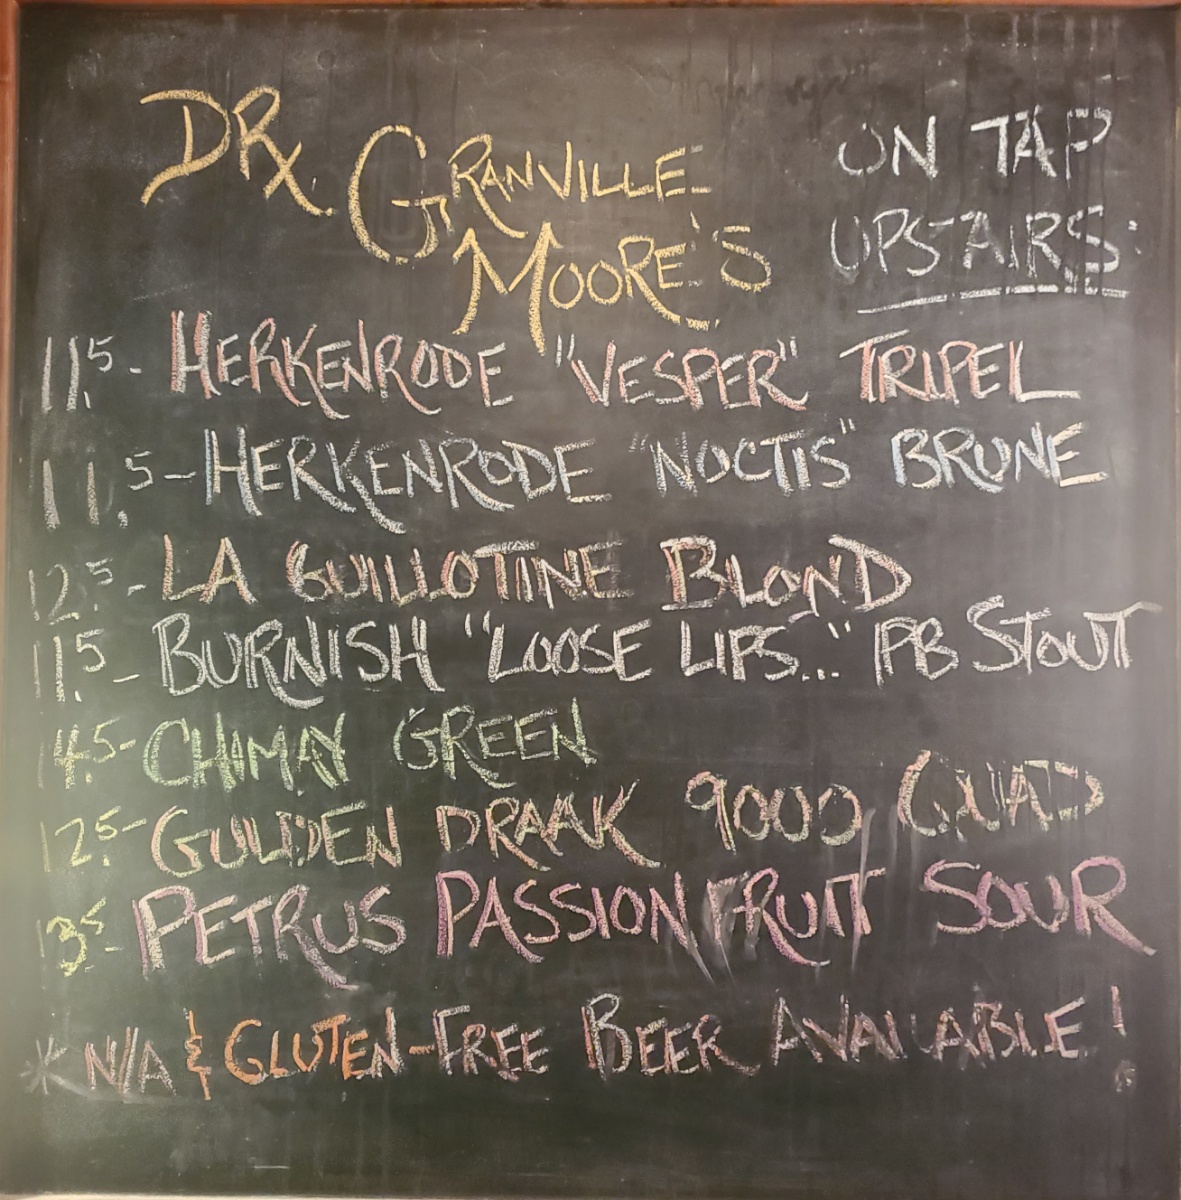 DRx. GRANVILLE MOORE'S
ON TAP
UPSTAIRS:
11.5- HERKENRODE "VESPER" TRIPEL
11.5- HERKENRODE "NOCTIS" BRUNE
12.5- LA GUILLOTINE BLOND
11.5- BURNISH "LOOSE LIPS..." PB STOUT
14.5- CHIMAY GREEN
12.5- GULDEN DRAAK 9000 QUAD
13.5- PETRUS PASSION FRUIT SOUR
* N/A & GLUTEN-FREE BEER AVAILABLE!